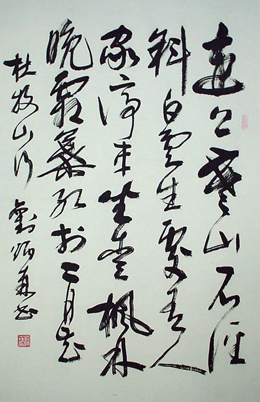 遠上寒山石徑
斜白雲生處有人
家停車坐愛楓林
晚霜葉紅於二月花
杜牧山行 劉炳森書